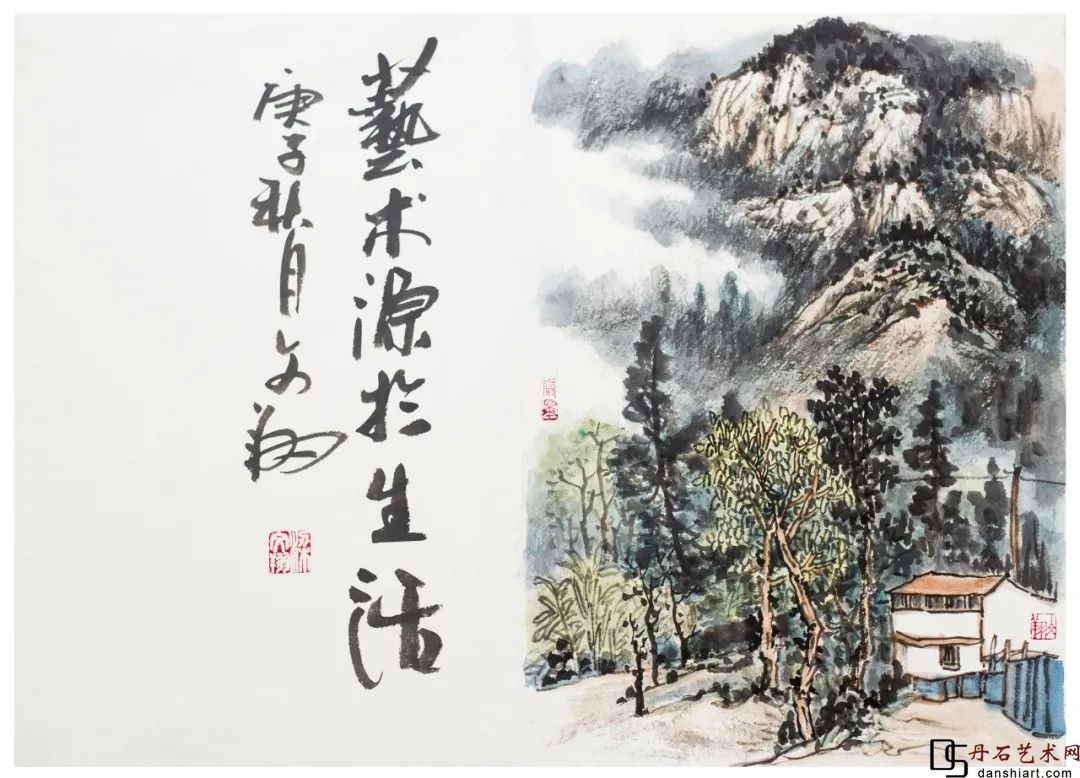 藝术源於生活
庚子秋月文翔
DS
丹石艺术网
danshiart.com